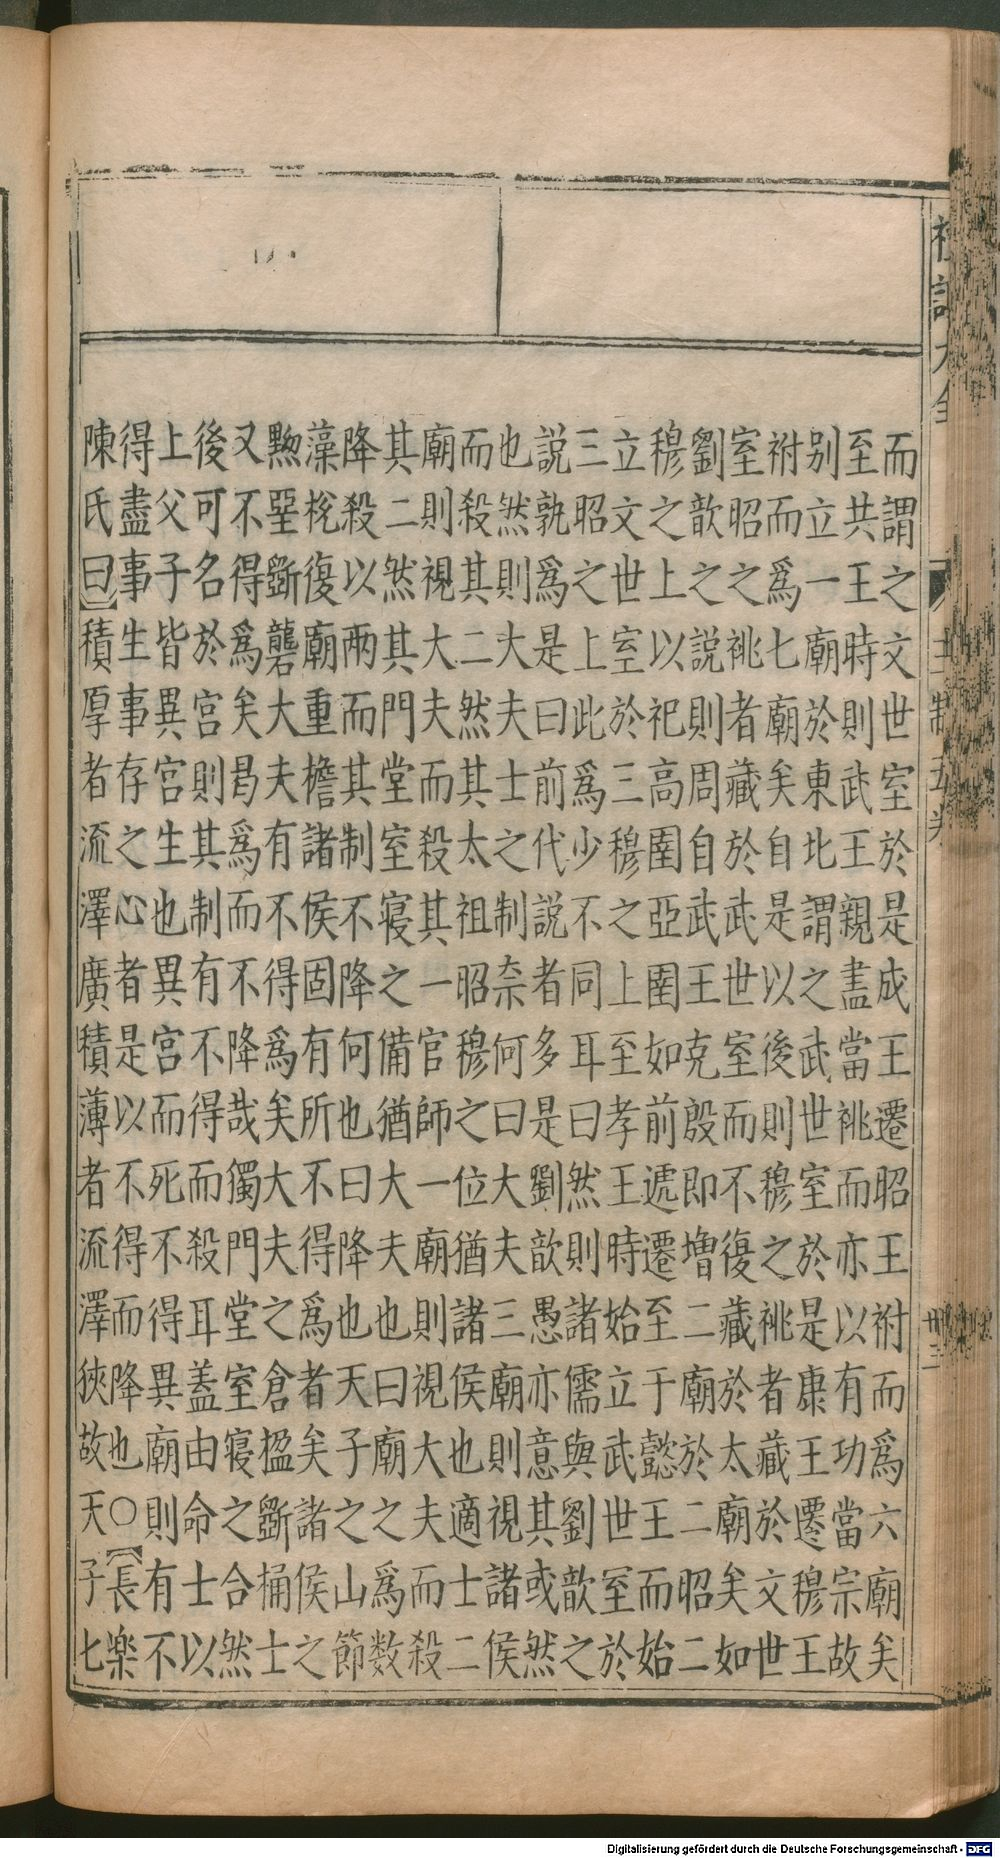 而謂之文世室於是成王遷昭王祔而爲六廟矣
至共王時則武王親盡當祧而亦以有功當宗故
别立一廟於東北謂之武世室於是康王遷穆王
祔而爲七廟矣自是以後則穆之祧者藏於文世
室昭之祧者藏於武世室而不復藏於太廟矣如
劉歆之說則周自武王克殷即增二廟於二昭二
穆之上以祀高圉亞圉如前遞遷至于懿王而始
立文世室於三穆之上至孝王時始立武世室於
三昭之上此爲少不同耳曰然則諸儒與劉歆之
說孰爲是曰前代說者多是劉歆愚亦意其或然
也然則大夫士之制奈何曰大夫三廟則視諸侯
而殺其二然其太祖昭穆之位猶諸侯也適士二
廟則視大夫而殺其一官師一廟則視大夫而殺
其二然其門堂室寢之備猶大夫也曰廟之爲数
降殺以兩而其制不降何也曰降也天子之山節
藻梲復廟重檐諸侯固有所不得爲者矣諸侯之
黝堊斵礱大夫有不得爲矣大夫之倉楹斵桷士
又不得爲矣曷爲而不降哉獨門堂室寢之合然
後可名於宮則其制有不得而殺耳盖由命士以
上父子皆異宮生也異宮而死不得異廟則有不
得盡事生事存之心者是以不得而降也○【長樂
陳氏曰】積厚者流澤廣積薄者流澤狹故天子七
Digitalisierung gefördert durch die Deutsche Forschungsgemeinschaft - DFG